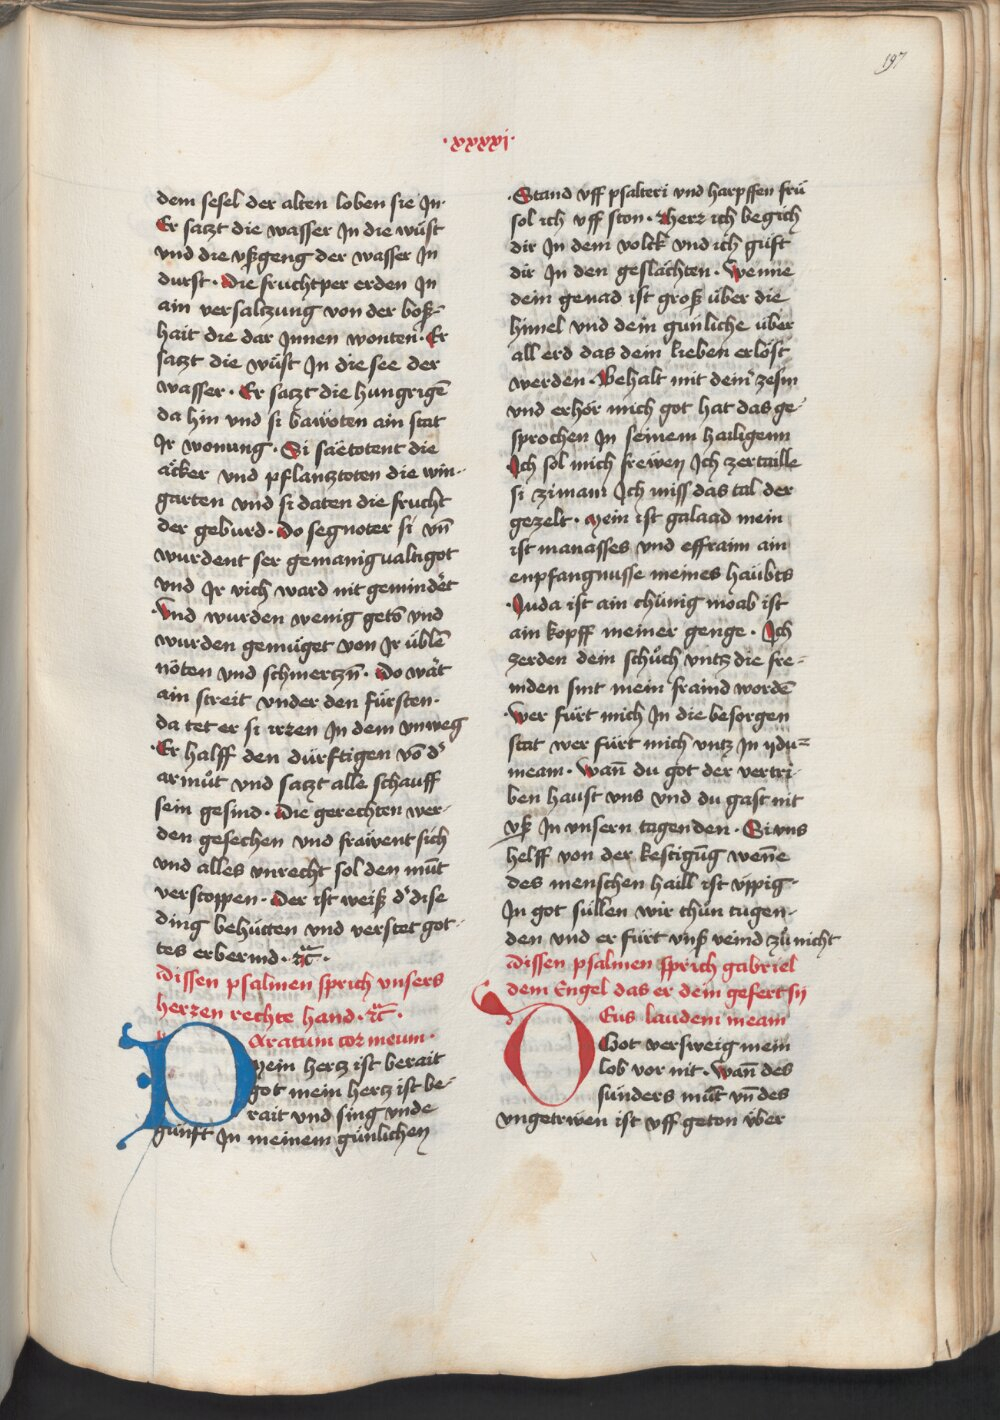 197
·xxxxi·
dem sesel der alten loben sie In·
Er satzt die wasser In die wúst
vnd die vßgeng der wasser In
durst· Die fruchtper erden In
ain versaltzung von der boß-
hait die dar Innen wonten· Er
satzt die wúst In die see der
wasser· Er satzt die hungrigē
da hin vnd si bawoten ain stat
Ir wonung· Si säetotent die
äcker vnd pflanztoten die win-
garten vnd si daten die frucht
der geburd· Do segnoter si vn̄
wurdent ser gemanigualtigot
vnd Ir vich ward nit gemindēt
·Vnd wurden wenig getō vnd
wurden gemúget von Ir úblē
nöten vnd schmertzn̄· Do wāt
ain streit vnder den fúrsten·
da tet er si irren In dem vnweg
·Er halff den dúrftigen vō ds
armůt vnd satzt alle schauff
sein gesind· Die gerechten wer-
den gesechen vnd fräwent sich
vnd alles vnrecht sol den műt
verstoppen· Der ist weiß ds dise
ding behútten vnd verstet got-
tes erbermd· ꝛc̄·
Dissen psalmen sprich vnsers
herzen rechte hand· ꝛc̄·
Paratum cor meum·
Mein hertz ist berait
got mein hertz ist be-
rait vnd sing vnde
gúnft In meinem gúnlichen
·Stand vff psalteri vnd harpffen frú
sol ich vff ston· Herr ich begich
dir In dem volck vnd ich gúft
dir In den geslächten· Wenne
dein genad ist groß úber die
himel vnd dein gunliche úber
all erd das dein lieben erlöst
werden· Behalt mit dein̄ zesm
vnd erhör mich got hat das ge-
sprochen In seinem hailigenn
Ich sol mich frewen Ich zertaille
si zimam Ich miss das tal der
gezelt· Mein ist galaad mein
ist manasses vnd effraim ain
enpfangnusse meines haúbts
·Iuda ist ain chúnig moab ist
ain kopff meiner genge· Ich
zerden dein schůch vntz die fre-
mden sint mein fraind wordē
·Wer fúrt mich In die besorgen
stat wer fúrt mich vntz In ydu=
meam· Wan̄ du got der vertri-
ben haust vns vnd du gast nit
vß In vnsern tugenden· Gi vns
helff von der kestigūg wen̄e
des menschen haill ist vppig·
In got súllen wir thůn tugen-
den vnd er fúrt vnß veind zů nicht
Dissen psalmen sprich gabriel
dem Engel das er dein gefert sy
Deus laudem meam
Got versweig mein
lob vor nit· Wan̄ des
súnders műt vn̄ des
vngetrwen ist vff geton úber